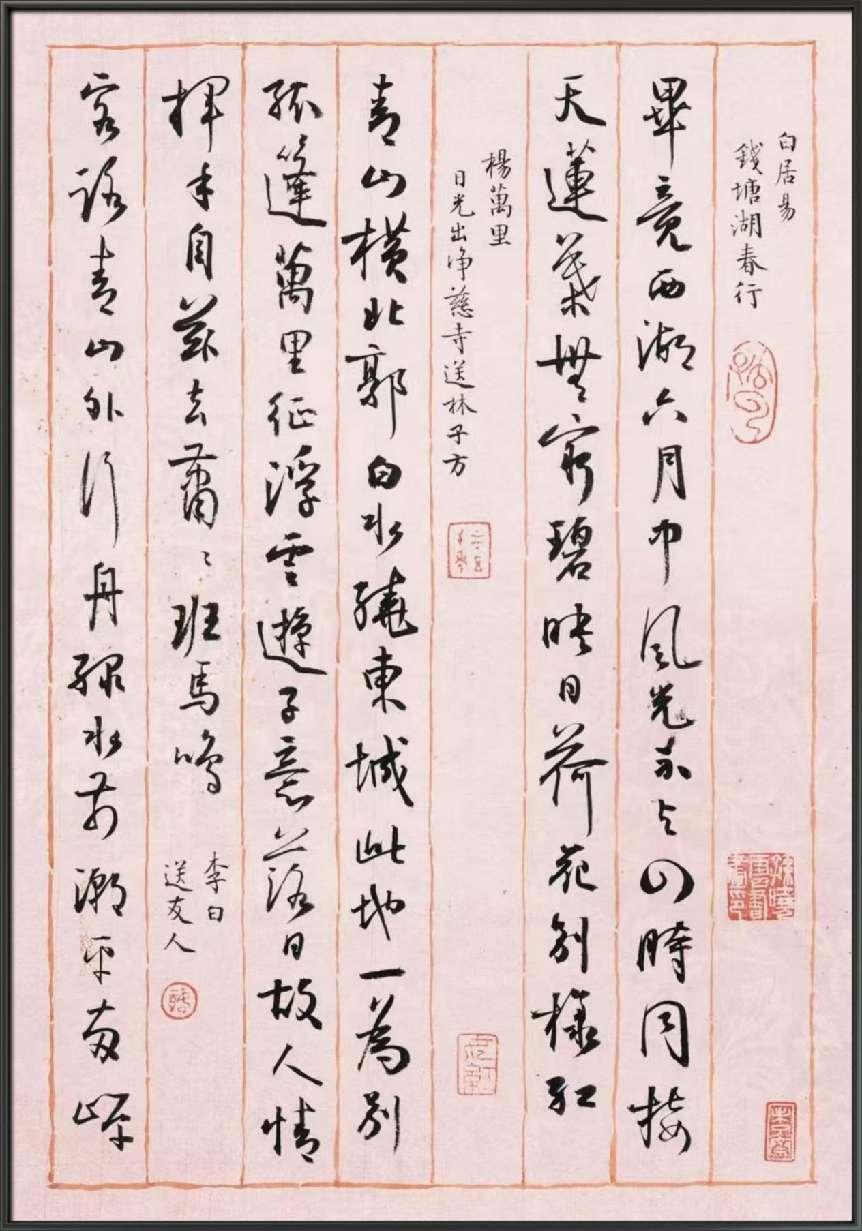 白居易
錢塘湖春行
畢竟西湖六月中風光不与四時同接
天蓮葉無窮碧映日荷花別樣紅
楊萬里
日光出净慈寺送林子方
青山橫北郭白水繞東城此地一為別
孤篷萬里征浮雲遊子意落日故人情
揮手自茲去蕭〻班馬鳴
李白
送友人
客路青山外行舟綠水前潮平兩岸